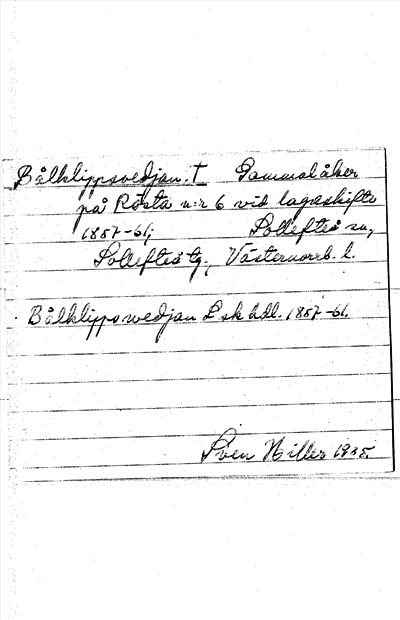 Bålklippsvedjan. † Gammal åker
på Rösta n:r 6 vid lagaskifte
1857-61; Sollefteå sn,
Sollefteå tg., Västernorrl. l.
Bålklippswedjan Lsk hdl. 1857-61.
Sven Hiller 1935.